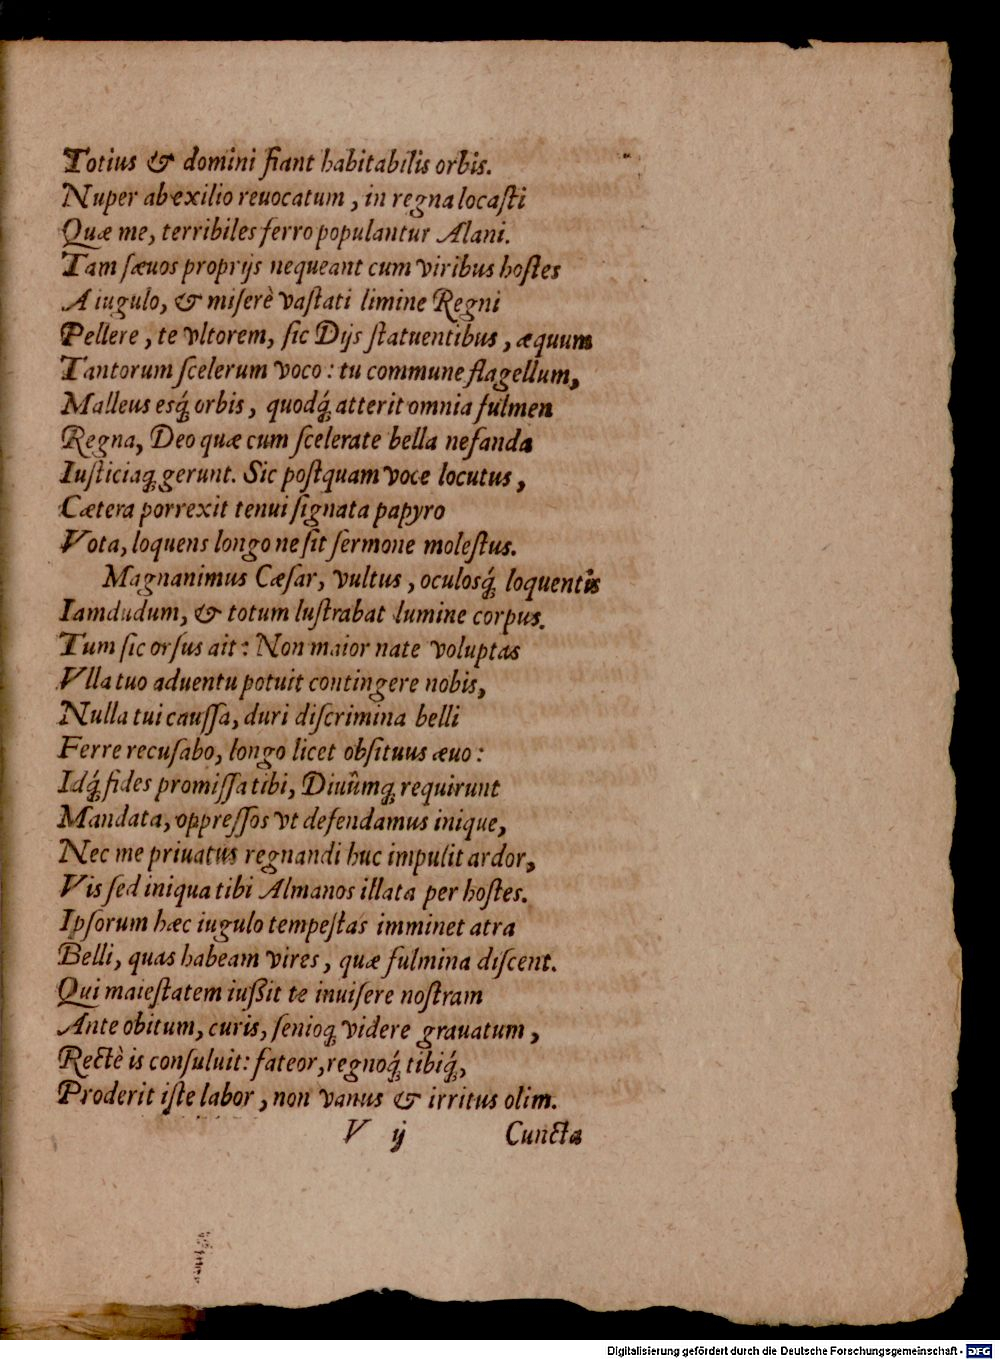 Totius & domini fiant habitabilis orbis.
Nuper ab exilio reuocatum, in regna locaſti
Quæ me, terribiles ferro populantur Alani.
Tam ſæuos proprijs nequeant cum viribus hoſtes
A iugulo, & miſerè vaſtati limine Regni
Pellere, te vltorem, ſic Dijs ſtatuentibus, æquum
Tantorum ſcelerum voco: tu commune flagellum,
Malleus esq́; orbis, quodq́; atterit omnia fulmen
Regna, Deo quæ cum ſcelerate bella nefanda
Iuſticiaq; gerunt. Sic poſtquam voce locutus,
Cætera porrexit tenui ſignata papyro
Vota, loquens longo ne ſit ſermone moleſtus.
Magnanimus Cæſar, vultus, oculosq́; loquentis
Iamdudum, & totum luſtrabat lumine corpus.
Tum ſic orſus ait: Non maior nate voluptas
Vlla tuo aduentu potuit contingere nobis,
Nulla tui cauſſa, duri diſcrimina belli
Ferre recuſabo, longo licet obſitus æuo:
Idq́; fides promiſſa tibi, Diuûmq; requirunt
Mandata, oppreſſos vt defendamus inique,
Nec me priuatus regnandi huc impulit ardor,
Vis ſed iniqua tibi Almanos illata per hoſtes.
Ipſorum hæc iugulo tempeſtas imminet atra
Belli, quas habeam vires, quæ fulmina diſcent.
Qui maieſtatem iuſſit te inuiſere noſtram
Ante obitum, curis, ſenioq; videre grauatum,
Rectè is conſuluit: fateor, regnoq́; tibiq́;,
Proderit iſte labor, non vanus & irritus olim.
V ij Cuncta
Digitalisierung gefördert durch die Deutsche Forschungsgemeinschaft - DFG